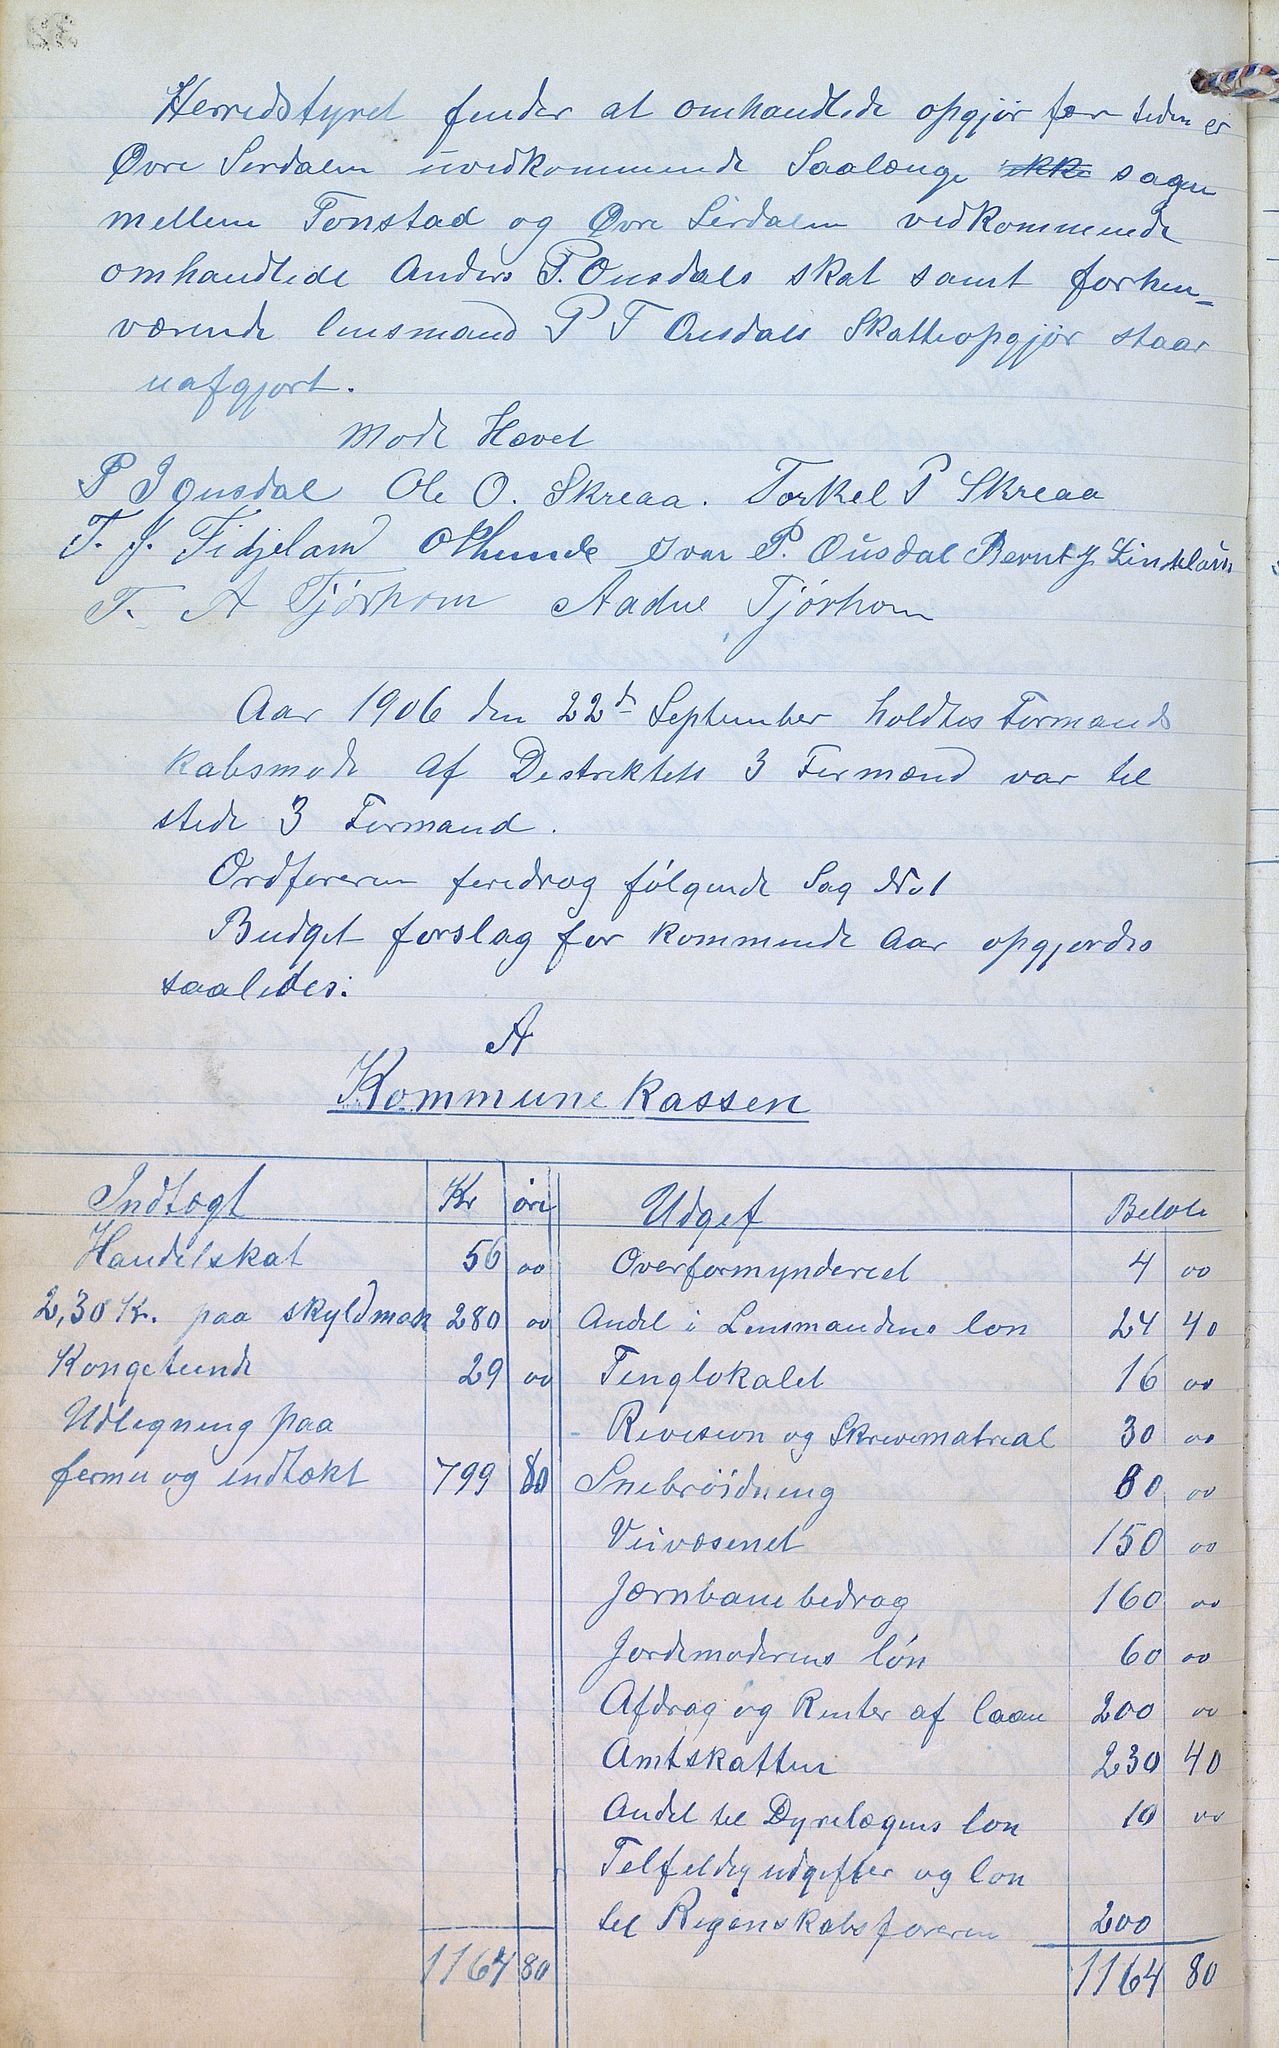 Herredstyret finder at omhandlede opgjør for tiden er
Øvre Serdalen uvedkommende Saalænge ikke sagen
mellem Tonstad og Øvre Serdalen vedkommende
omhandlede Anders P. Ousdals skat samt forhen-
værende lensmand P T Ousdals Skatteopgjør staar
uafgjort.
Mode Hævet
P J Ousdal Ole O. Skreaa. Torkel P Skreaa
T. J. Fidjeland Ivar P. Ousdal Bernt J Lindeland
T. A Tjørhom Aadne Tjørhom
Aar 1906 den 22d September holdtes Formands
kabsmode af Destriktets 3 Formænd var til
stede 3 Formand.
Ordforeren foredrog følgende Sag No 1
Budget forslag for kommende Aar opgjordes
saaledes:
A
Kommune kassen
Indtægt Kr øre Udgef Beløb
Handelskat 56 00 Overformynderiet 4 00
2,30 Kr. paa skyldmak 280 00 Andel i Lensmandens lon 24 40
Kongetiende 29 00 Tinglokalet 16 00
Udlegning paa Revision og Skrivematrial 30 00
formu og indtækt 799 80 Snebrøidning 80 00
Veivæsenet 150 00
Jærnbane bedrag 160 00
Jordemoderens løn 60 00
Afdrag og Renter af laan 200 00
Amtskatten 230 40
Andel til Dyrelægens lon 10 00
Telfeldig udgifter og lon
til Regenskabsforeren 200
1164 80 1164 80